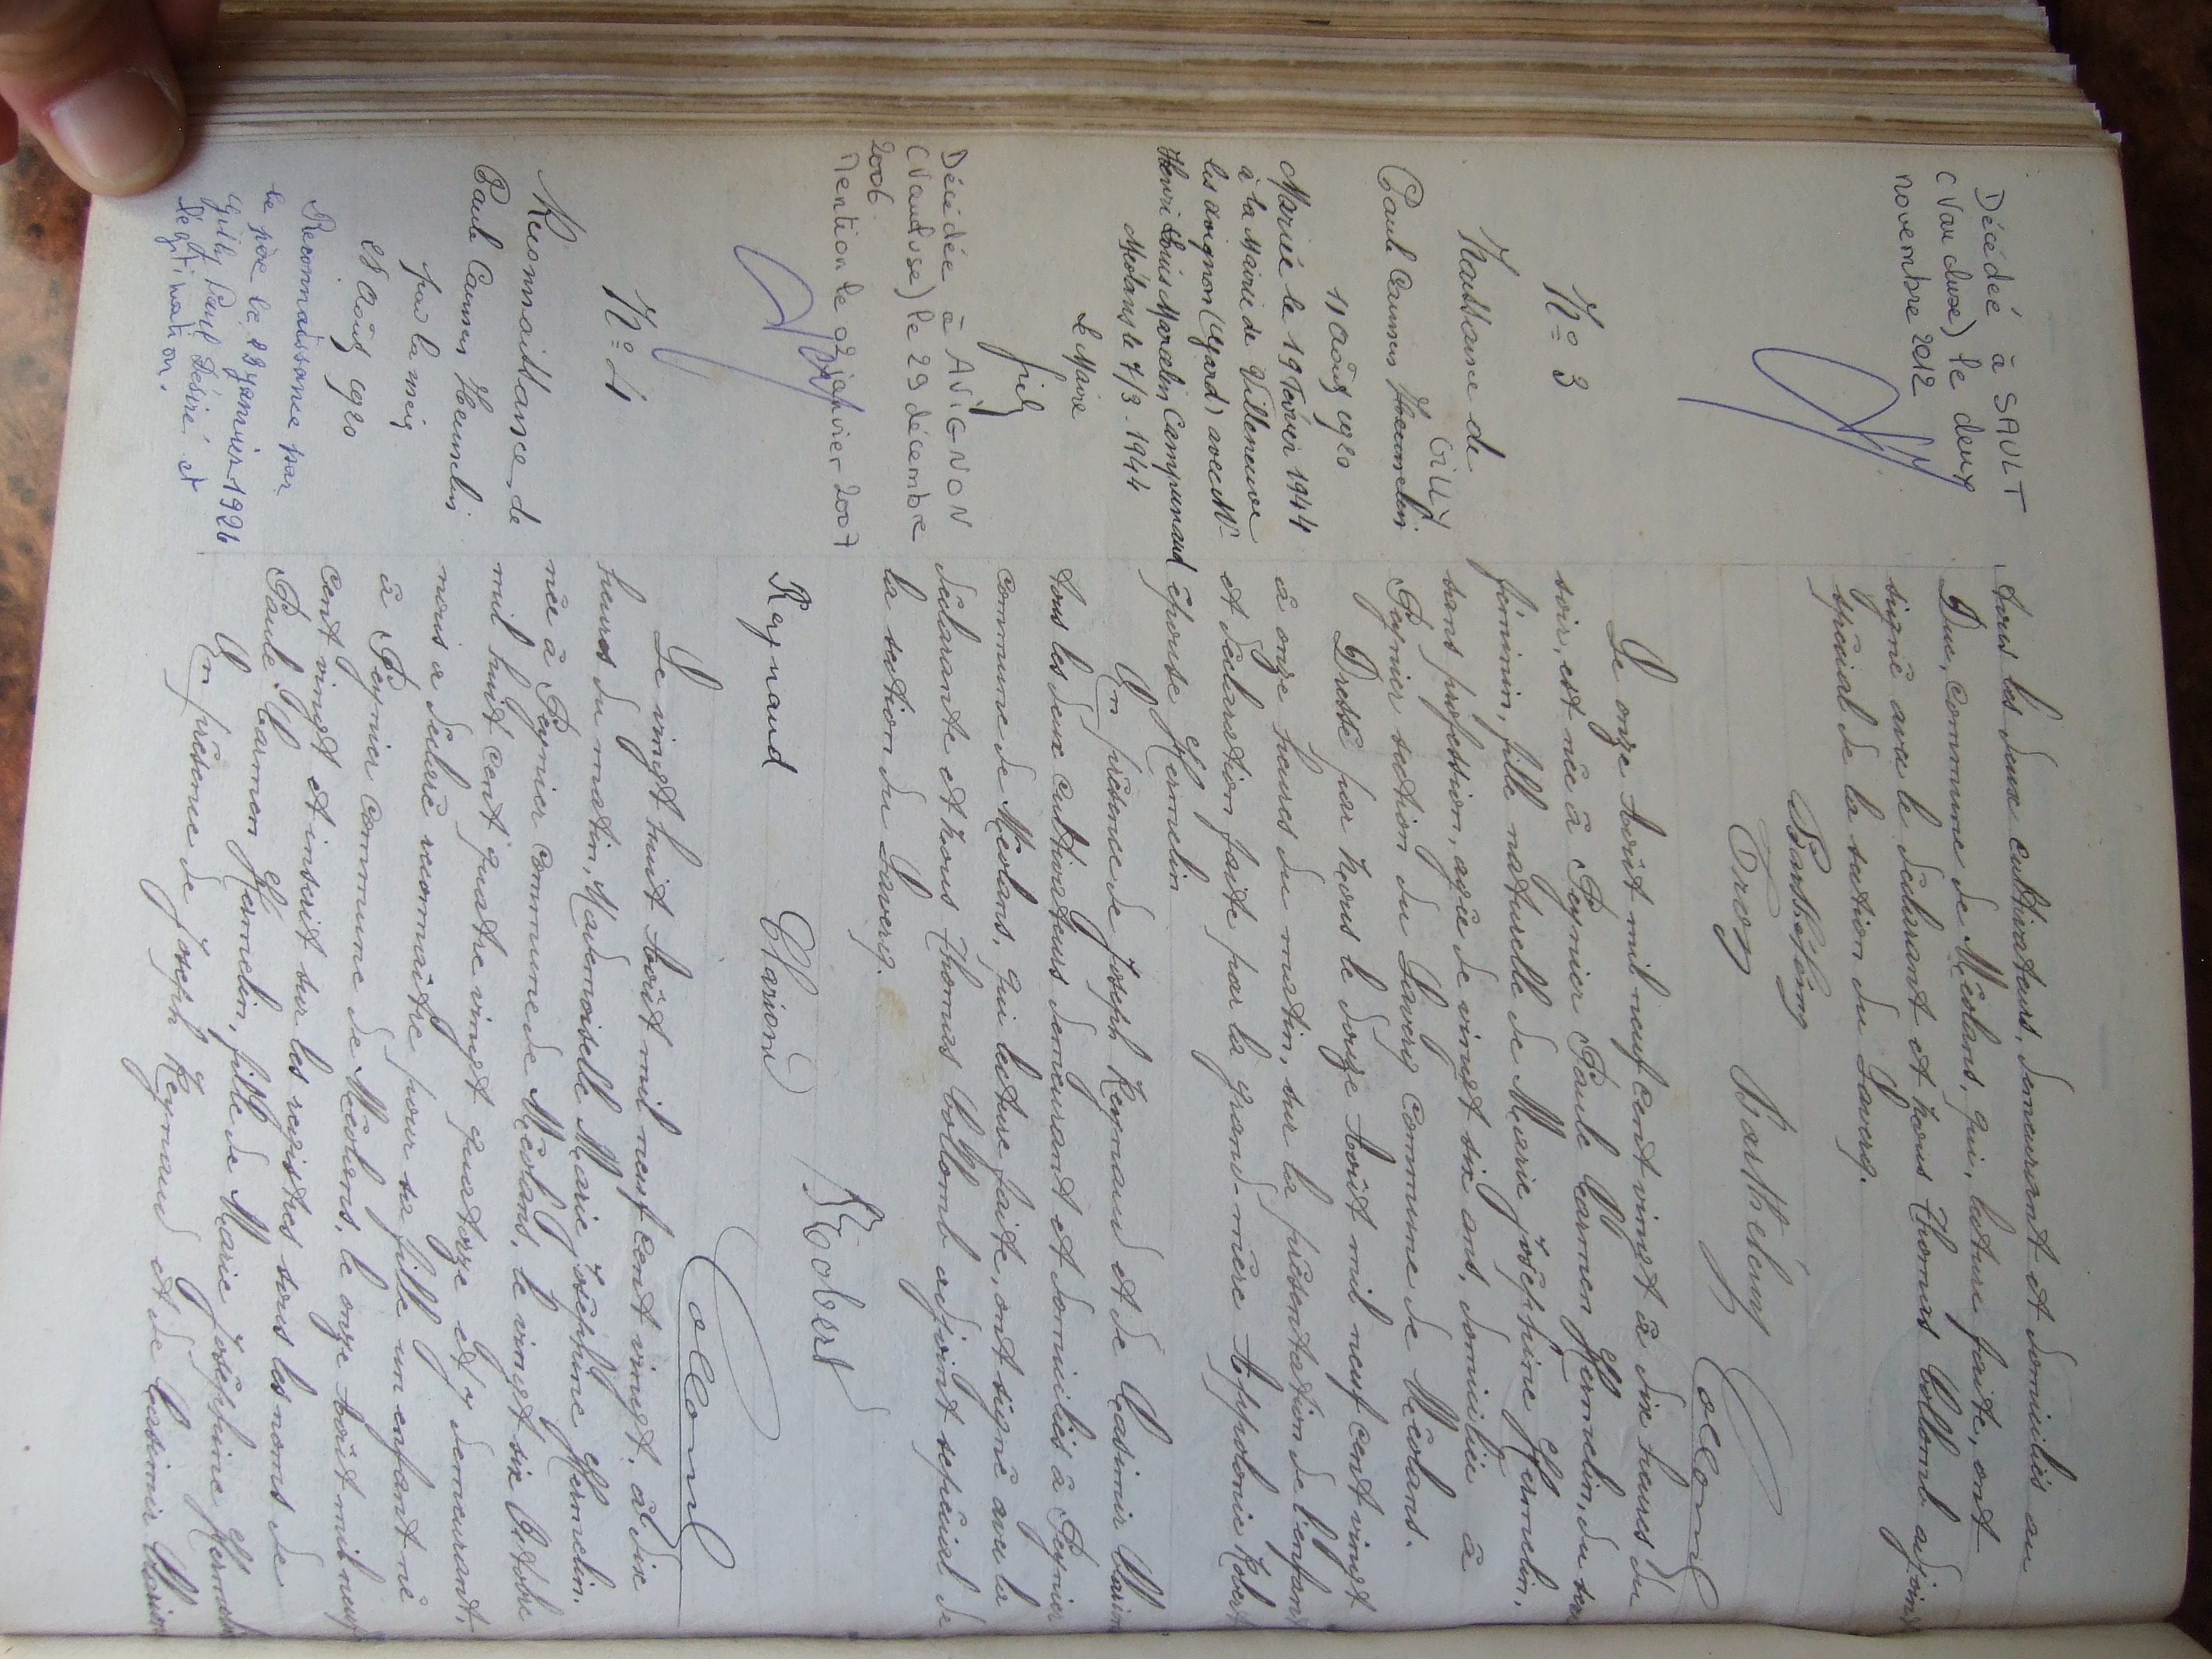 Décédée à SAULT
(Vaucluse) le deux
novembre 2012
tous les deux cultivateurs, demeurant et domiciliés au
Duc, commune de Méolans, qui, lecture faite, ont
signé avec le déclarant et Nous Thomas Collomb adjoint
spécial de la section du Laverq.
Barthélemy
Tron Barthélemy
Collomb
N° 3
Naissance de
GILLY
Paule Carmen Hermelin
11 Août 1920
Mariée le 19 Février 1944
à la Mairie de Villeneuve
les avignon (Gard) avec Mr
Henri Louis Marcelin Campunaud
Méolans le 7/3 - 1944
Le Maire
Décédée à AVIGNON
(Vaucluse) le 29 décembre
2006.
Mention le 02 janvier 2007
Le onze Août mil neuf cent vingt à dix heures du
soir, est née à Peynier Paule Carmen Hermelin, du sexe
féminin, fille naturelle de Marie Joséphine Hermelin,
sans profession, agée de vingt six ans, domiciliée à
Peynier section du Laverq commune de Méolans.
Dressé par Nous le douze Août mil neuf cent vingt
à onze heures du matin, sur la présentation de l'enfant
et déclaration faite par la grand-mère Appolonie Robert
épouse Hermelin
En présence de Joseph Reynaud et de Casimir Clarion
tous les deux cultivateurs demeurant et domiciliés à Peynier
commune de Méolans, qui lecture faite, ont signé avec la
déclarante et Nous Thomas Collomb adjoint spécial de
la section du Laverq.
Reynaud Clarion Robert
Collomb
N° 4
Reconnaissance de
Paule Carmen Hermelin
par la mère
28 Août 1920
Reconnaissance par
le père le 22 janvier 1926
Gilly Paul Désiré et
légitimation.
Le vingt huit Août mil neuf cent vingt, à dix
heures du matin, Mademoiselle Marie Joséphine Hermelin.
née à Peynier commune de Méolans, le vingt six Octobre
mil huit cent quatre vingt quatorze et y demeurant,
nous a déclaré reconnaître pour sa fille un enfant né
à Peynier commune de Méolans, le onze Août mil neuf
cent vingt et inscrit sur les registres sous les noms de
Paule Carmen Hermelin, fille de Marie Joséphine Hermelin
En présence de Joseph Reynaud et de Casimir Clarion